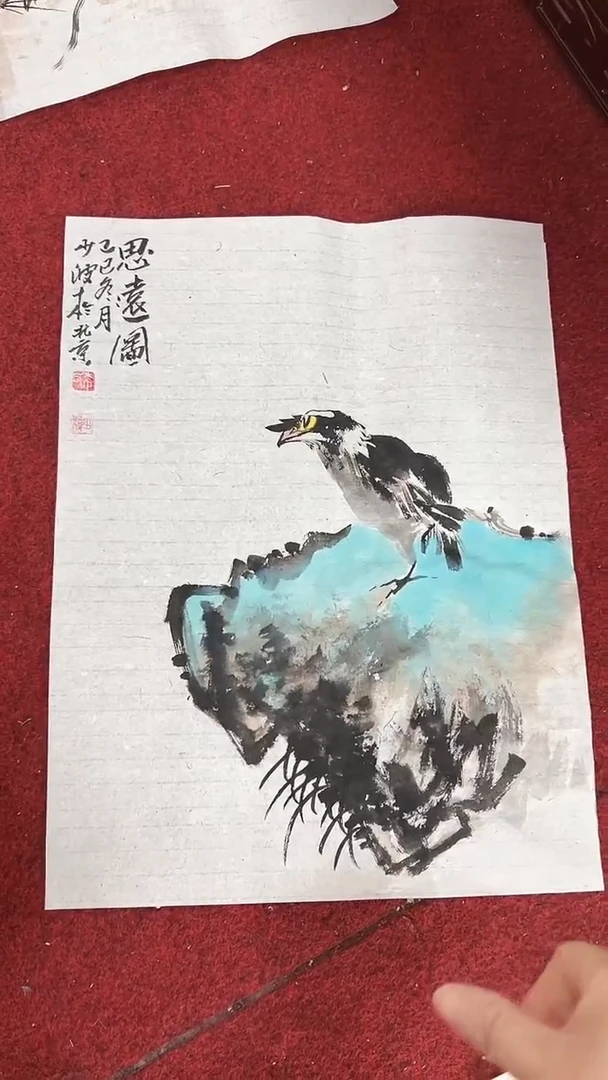 思遠圖
乙巳冬月
少波於北京